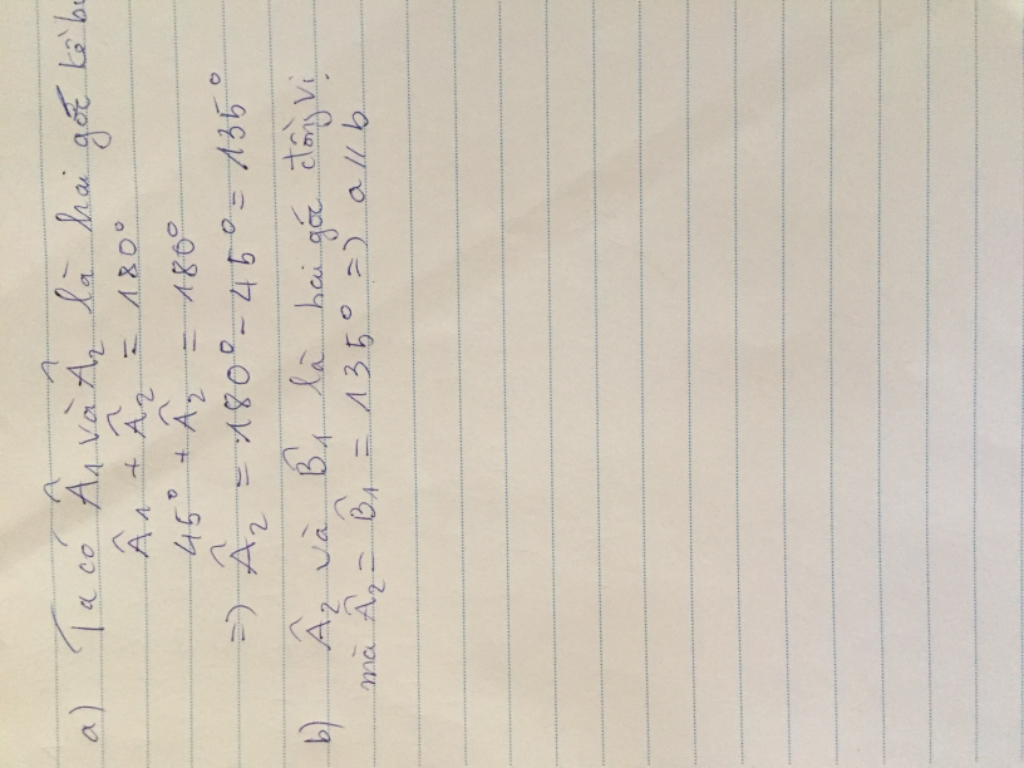 a) Ta có Â1 và Â2 là hai góc kề
Â1 + Â2 = 180°
45° + Â2 = 180°
=) Â2 = 180° - 45° = 135°
b) Â2 và B̂1 là hai góc đồng vị.
mà Â2 = B̂1 = 135° =) a // b